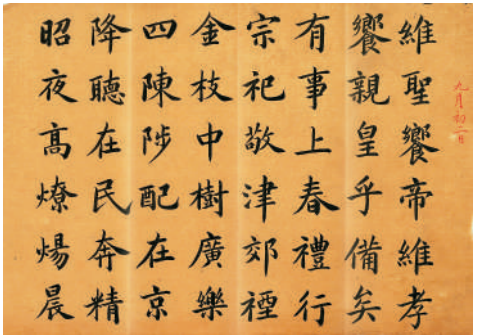 九月初二日
維聖饗帝維孝
饗親皇乎備矣
有事上春禮行
宗祀敬津郊禋
金枝中樹廣樂
四陳陟配在京
降聽在民奔精
昭夜高燎煬晨